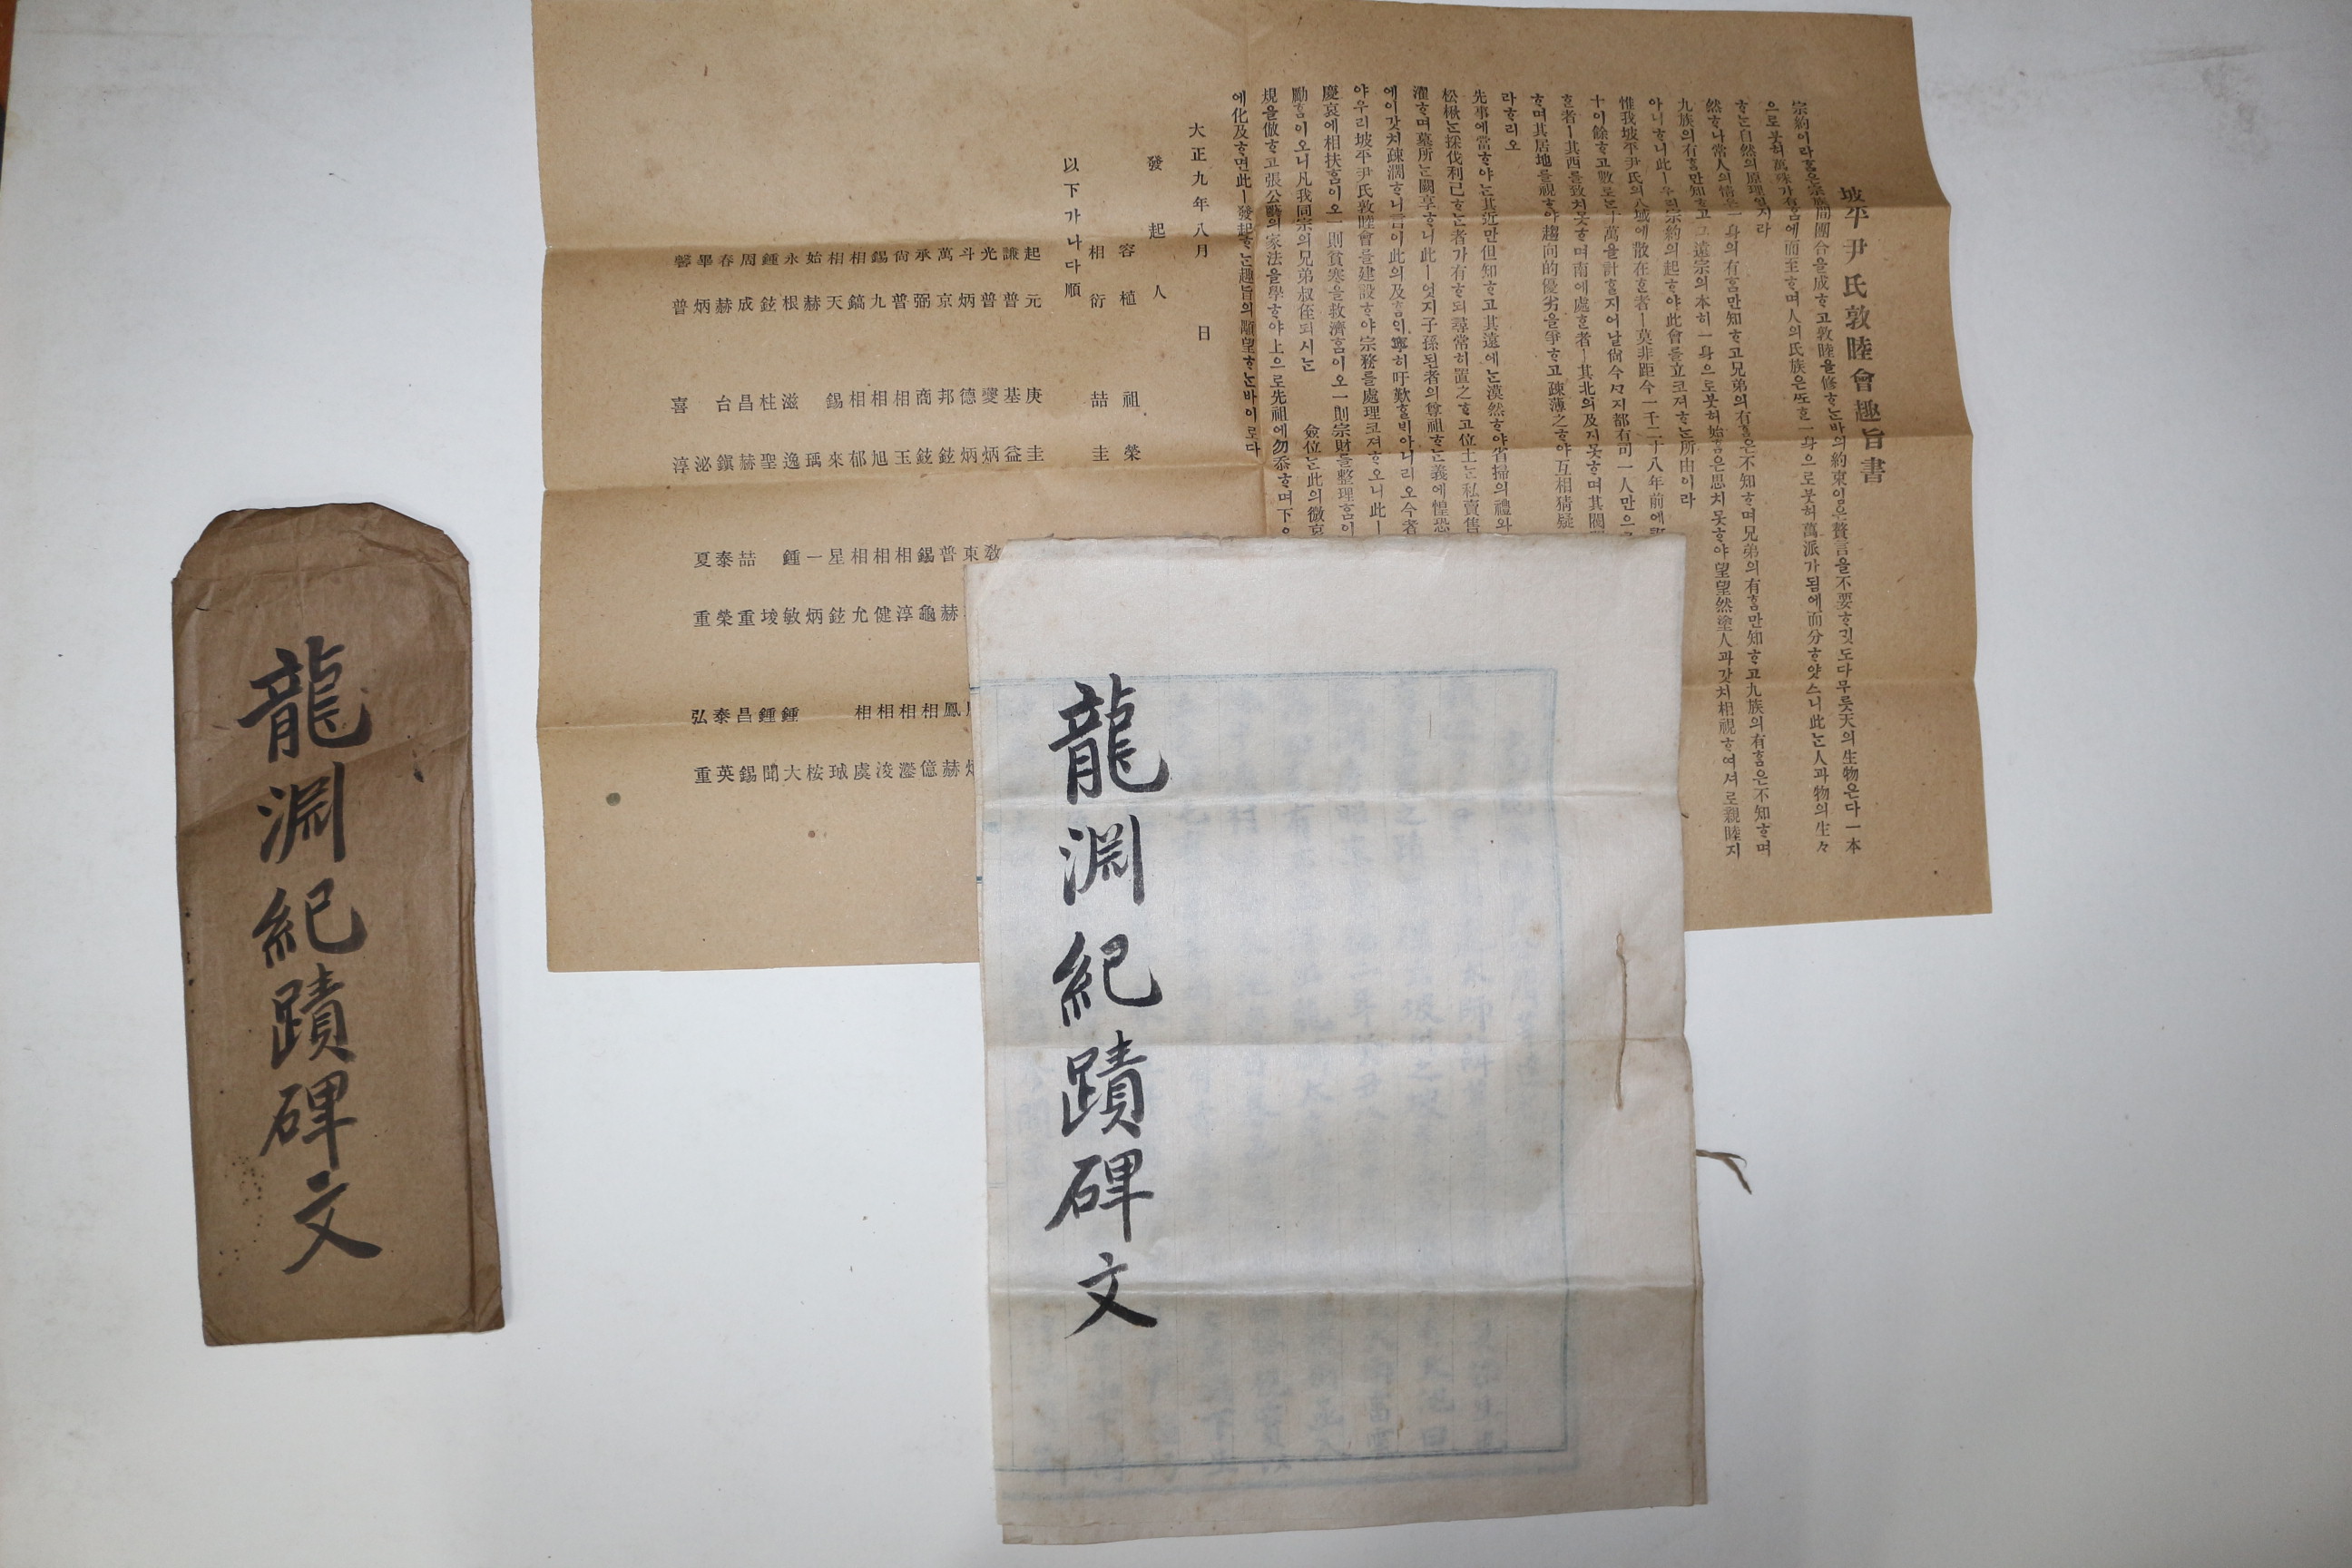 坡平尹氏敦睦會趣旨書
宗約이라ᄒᆞᆷ은宗族間團合을成ᄒᆞ고敦睦을修ᄒᆞ는바의約束임은贅言을不要ᄒᆞ깃도다무릇天의生物은다一本
으로붓허萬殊가有ᄒᆞᆷ에而至ᄒᆞ며人의氏族은ᄯᅩᄒᆞᆫ一身으로붓허萬派가됨에而分ᄒᆞ얏스니此는人과物의生々
ᄒᆞ는自然의原理일지라
然ᄒᆞ나常人의情은一身의有ᄒᆞᆷ만知ᄒᆞ고兄弟의有ᄒᆞᆷ은不知ᄒᆞ며兄弟의有ᄒᆞᆷ만知ᄒᆞ고九族의有ᄒᆞᆷ은不知ᄒᆞ며
九族의有ᄒᆞᆷ만知ᄒᆞ고그遠宗의本히一身으로붓허始ᄒᆞᆷ은思치못ᄒᆞ야望望然塗人과갓치相視ᄒᆞ여셔로親睦지
아니ᄒᆞ니此ㅣ우리宗約의起ᄒᆞ야此會를立코져ᄒᆞ는所由이라
惟我坡平尹氏의八域에散在ᄒᆞᆫ者ㅣ莫非距今一千二十八年前에
十이餘ᄒᆞ고數로는十萬을計ᄒᆞᆯ지어날尙今ᄭᅥ지都有司一人만으로
ᄒᆞᆫ者ㅣ其西를致치못ᄒᆞ며南에處ᄒᆞᆫ者ㅣ其北의及지못ᄒᆞ며其閥
ᄒᆞ며其居地를視ᄒᆞ야趨向的優劣을爭ᄒᆞ고疎薄之ᄒᆞ야互相猜疑
라ᄒᆞ리오
先事에當ᄒᆞ야는其近만但知ᄒᆞ고其遠에는漠然ᄒᆞ야省掃의禮와
松楸는採伐利己ᄒᆞ는者가有ᄒᆞ되尋常히置之ᄒᆞ고位土는私賣售
濯ᄒᆞ며墓所는闕享ᄒᆞ니此ㅣ엇지子孫된者의尊祖ᄒᆞ는義에惶恐
에이갓치疎濶ᄒᆞ니言이此의及ᄒᆞᆷ이寧히吁歎ᄒᆞᆯᄲᅵ아니리오今者
야우리坡平尹氏敦睦會를建設ᄒᆞ야宗務를處理코져ᄒᆞ오니此ㅣ
慶哀에相扶ᄒᆞᆷ이오一則貧寒을救濟ᄒᆞᆷ이오一則宗財를整理ᄒᆞᆷ이
勵ᄒᆞᆷ이오니凡我同宗의兄弟叔侄되시는 僉位는此의微哀
規을倣ᄒᆞ고張公藝의家法을學ᄒᆞ야上으로先祖에勿忝ᄒᆞ며下으
에化及ᄒᆞ면此ㅣ發起ᄒᆞ는趣旨의顒望ᄒᆞ는바이로다
大正九年八月 日
發起人
容植 祖榮
相衍 喆圭
以下가나다順
起元 謙普 光普 斗炳 萬京 承弼 尙普 錫九 相鎬 相天 始赫 永根 鍾鉉 周成 春赫 畢炳 馨普
庚圭 基益 夔炳 德炳 邦鉉 商鉉 相玉 相旭 相郁 錫來 瑀 滋逸 柱聖 昌赫 台鎭 泌 喜淳
敎 東 普赫 錫龜 相淳 相健 相允 星鉉 一炳 鍾敏 埈 喆重 泰榮 夏重
鳳赫 相億 相瀅 相淩 相虞 珹 桉 鍾大 鍾聞 昌錫 泰英 弘重
龍淵紀蹟碑文
龍淵紀蹟碑文